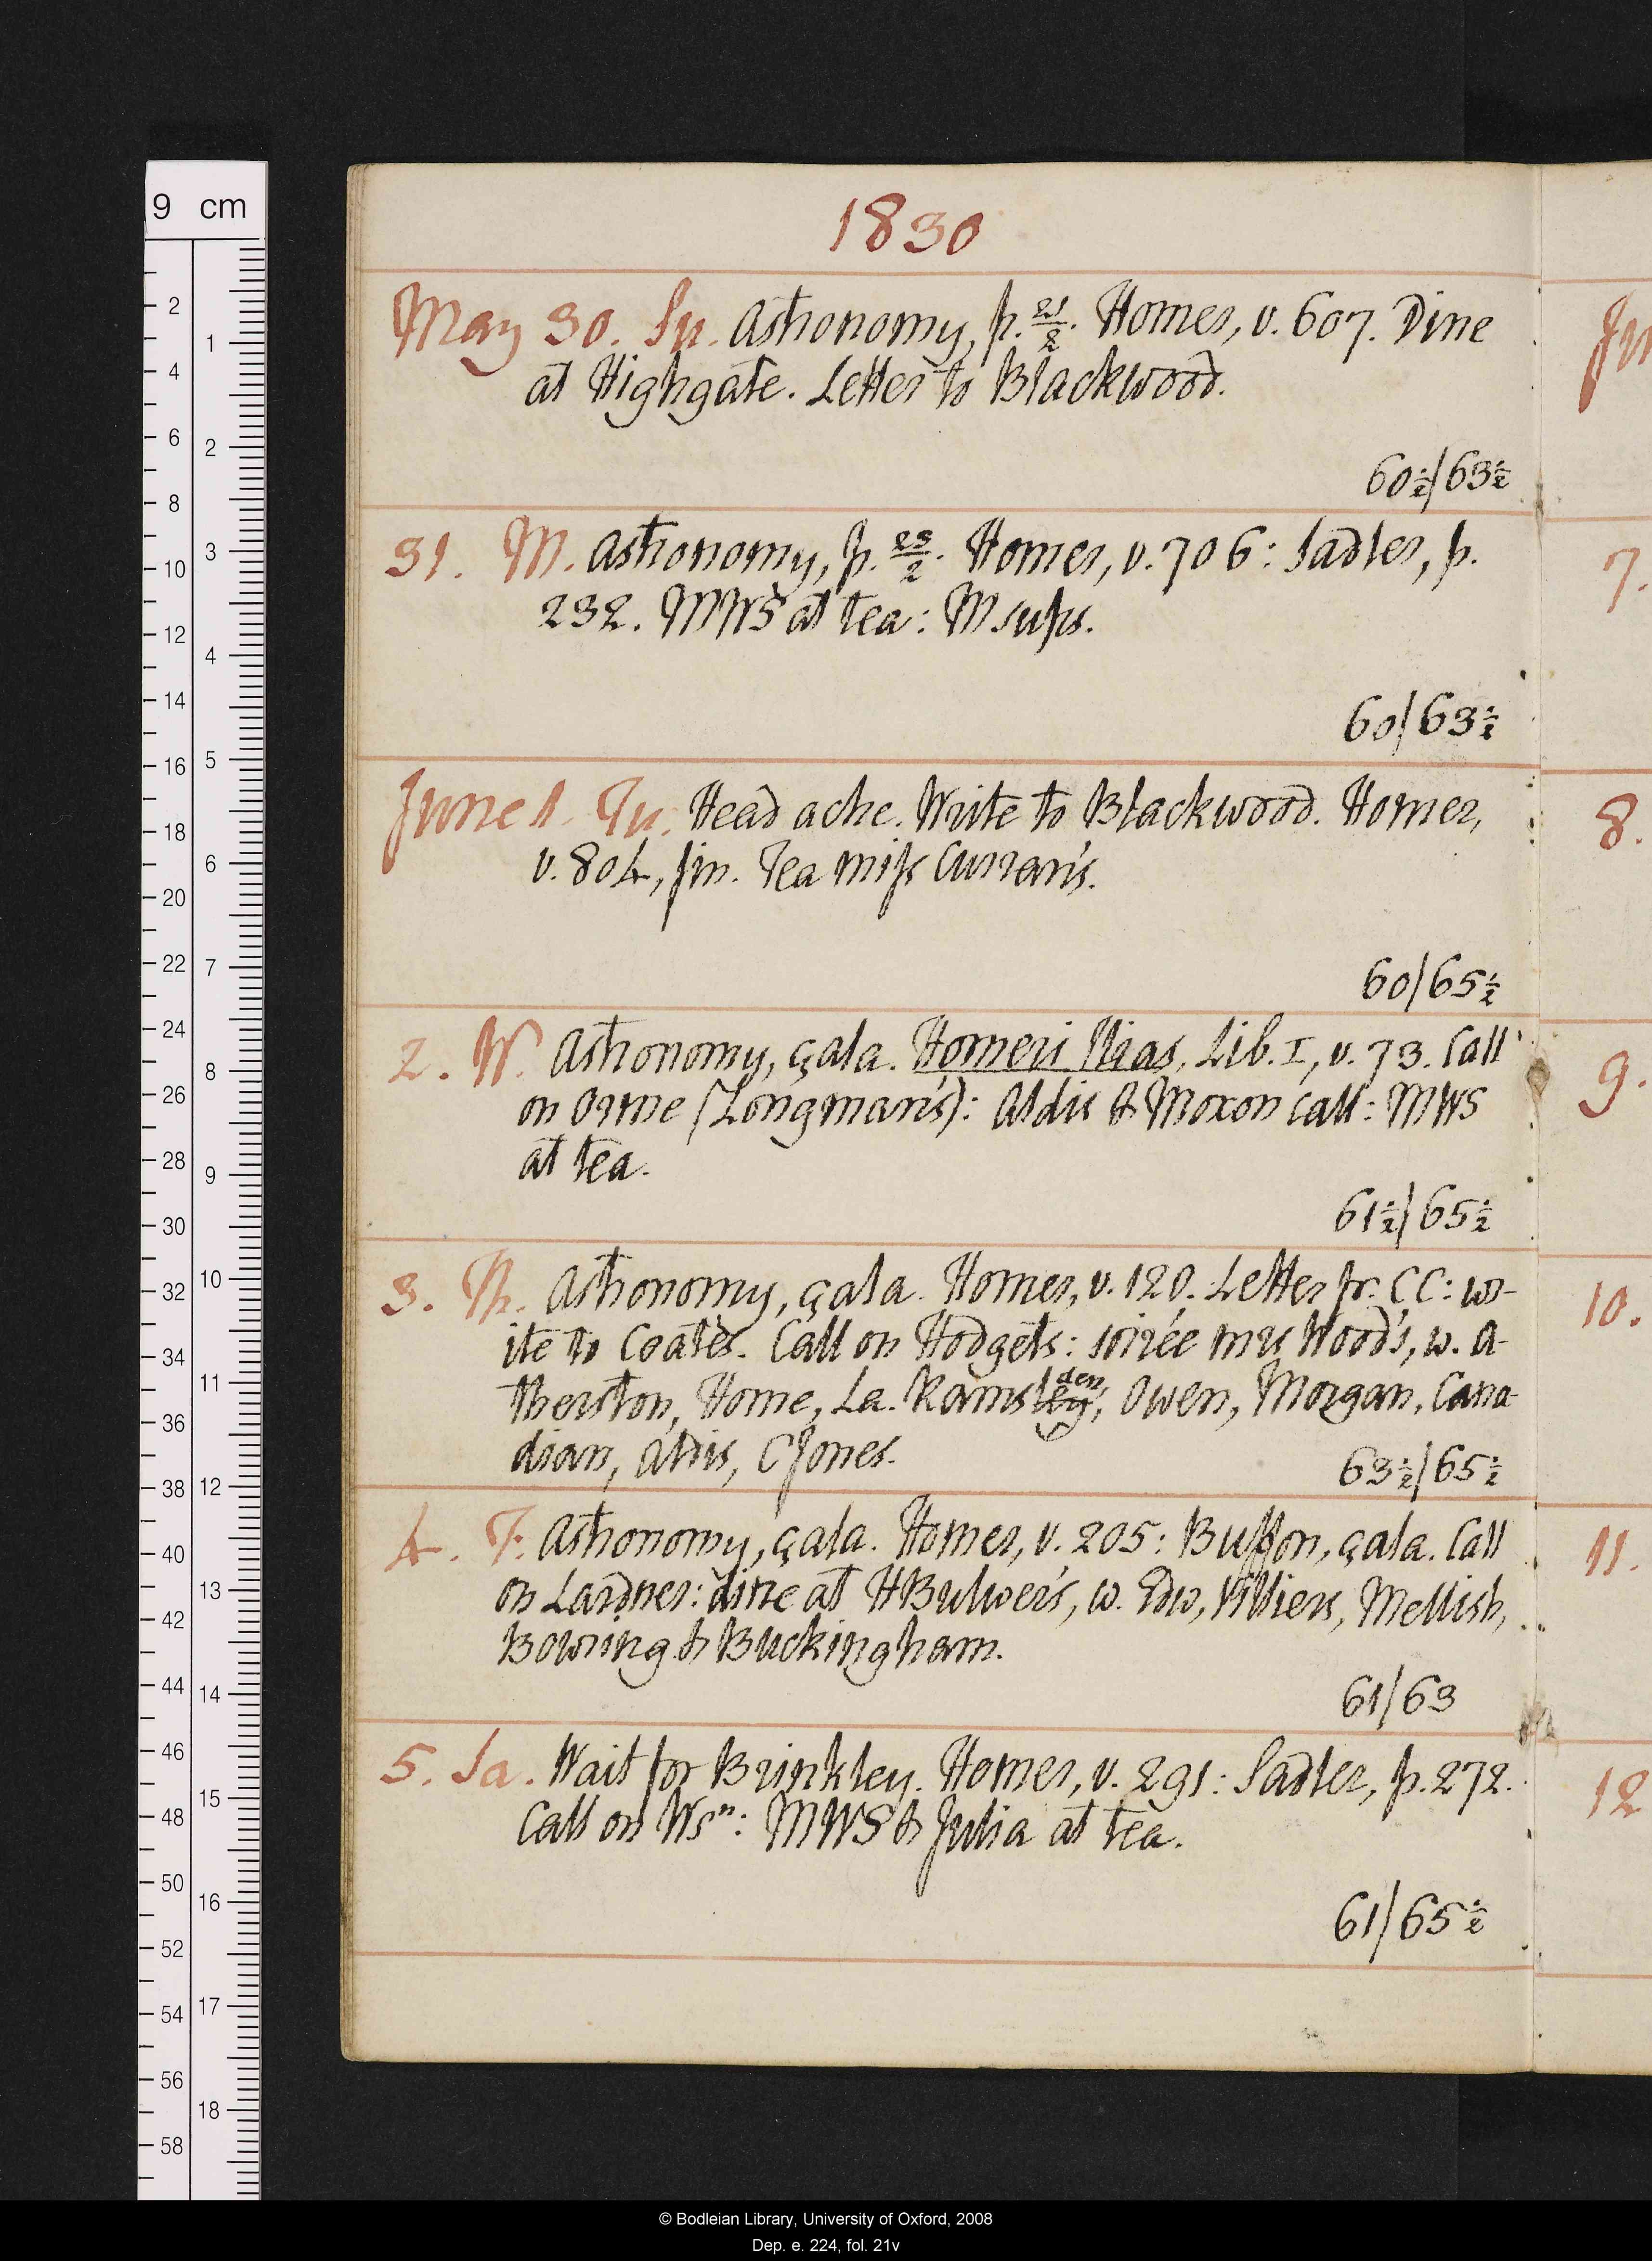 1830
May 30. Su. Astronomy, p. 21/2. Homer, v. 607. Dine
at Highgate. Letter to Blackwood.
60½/63½
31. M. Astronomy, p. 23/2. Homer, v. 706: Sadler, p.
232. MWS at tea: M sups.
60/63½
June 1. Tu. Head ache. Write to Blackwood. Homer,
v. 804, fin. Tea miss Curran's.
60/65½
2. W. Astronomy, çala. Homeri Ilias, Lib. I, v. 73. Call
on Orme (Longman's): Aldis & Moxon call: MWS
at tea.
61½/65½
3. Th. Astronomy, çala. Homer, v. 120. Letter fr. CC: wr-
ite to Coates. Call on Hodgets: soirée mrs Wood's, w. A-
therston, Home, La. Ramsley den, Owen, Morgan, Cana-
dian, Aldis, CJones.
63½/65½
4. F. Astronomy, çala. Homer, v. 205: Buffon, çala. Call
on Lardner: dine at HBulwer's, w. Edw, Villiers, Mellish,
Bowring & Buckingham.
61/63
5. Sa. Wait for Brinkley. Homer, v. 291: Sadler, p. 272.
Call on Wsn: MWS & Julia at tea.
61/65½
7.
8.
9.
10.
11.
12
9 cm
2 4 6 8 10 12 14 16 18 20 22 24 26 28 30 32 34 36 38 40 42 44 46 48 50 52 54 56 58
1 2 3 4 5 6 7 8 9 10 11 12 13 14 15 16 17 18
© Bodleian Library, University of Oxford, 2008
Dep. e. 224, fol. 21v